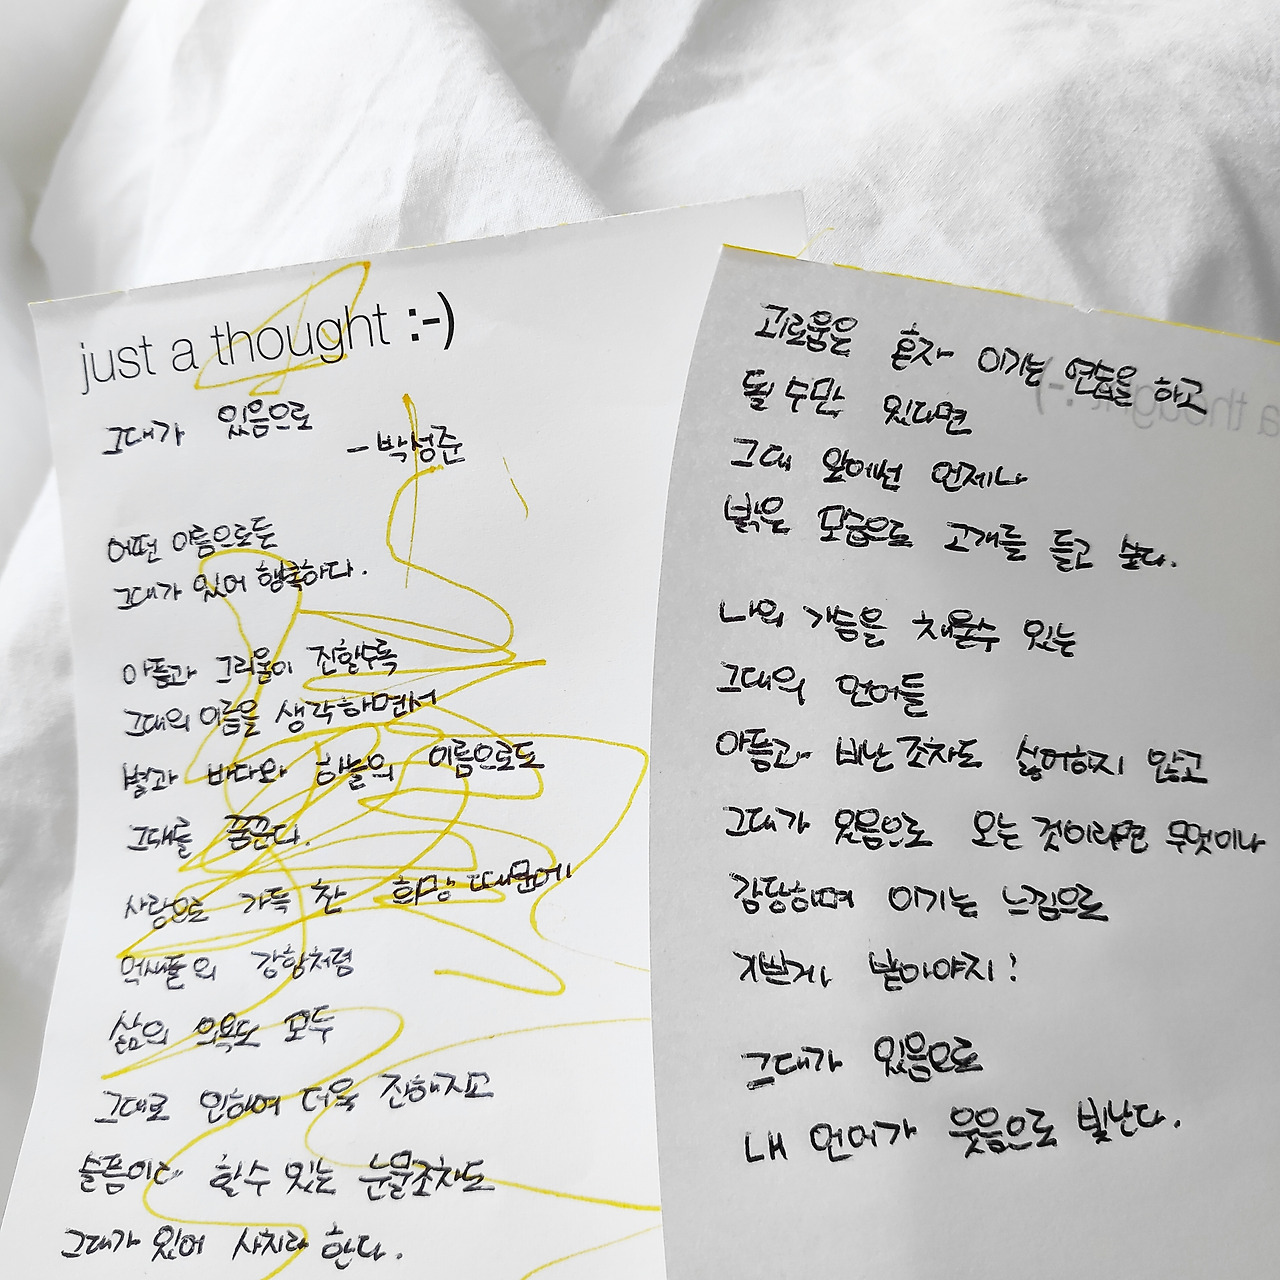 just a thought :-)
그대가 있음으로
- 박성준
어떤 이름으로든
그대가 있어 행복하다.
아픔과 그리움이 진할수록
그대의 이름을 생각하면서
별과 바다와 하늘의 이름으로도
그대를 꿈꾼다.
사랑으로 가득 찬 희망 때문에
억새풀의 강함처럼
삶의 의욕도 모두
그대로 인하여 더욱 진해지고
슬픔이라 할수 있는 눈물조차도
그대가 있어 사치라 한다.
괴로움은 혼자 이기는 연습을 하고
될 수만 있다면
그대 앞에선 언제나
밝은 모습으로 고개를 들고 싶다.
나의 가슴을 채울수 있는
그대의 언어들
아픔과 비난조차도 싫어하지 않고
그대가 있음으로 오는 것이라면 무엇이나
감당하며 이기는 느낌으로
기쁘게 받아야지!
그대가 있음으로
내 언어가 웃음으로 빛난다.